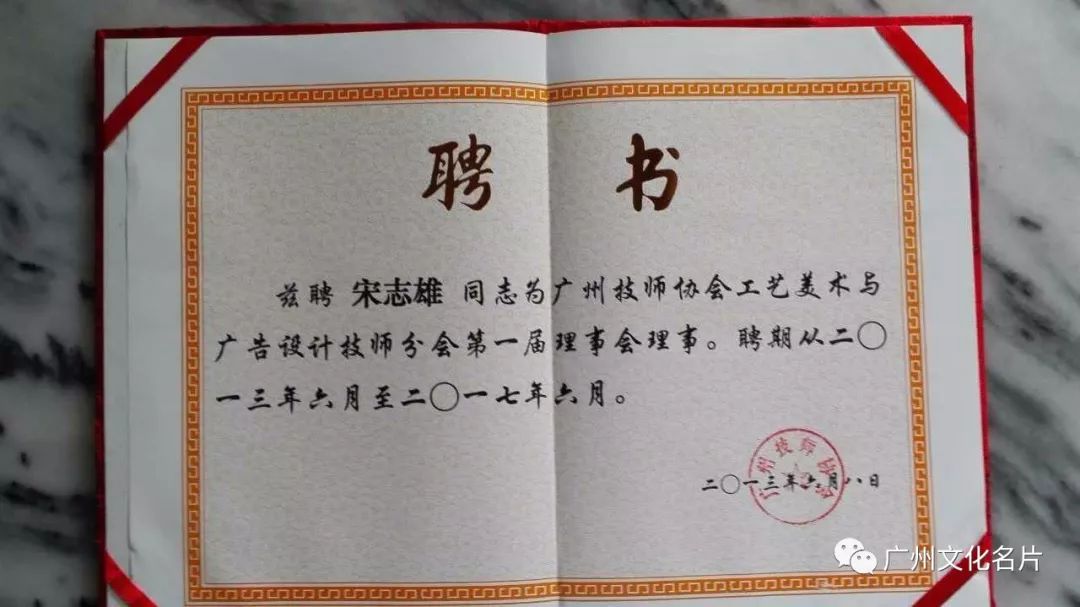 聘 书
兹聘 宋志雄 同志为广州技师协会工艺美术与
广告设计技师分会第一届理事会理事。聘期从二〇
一三年六月至二〇一七年六月。
广州技师协会
二〇一三年六月八日
广州文化名片